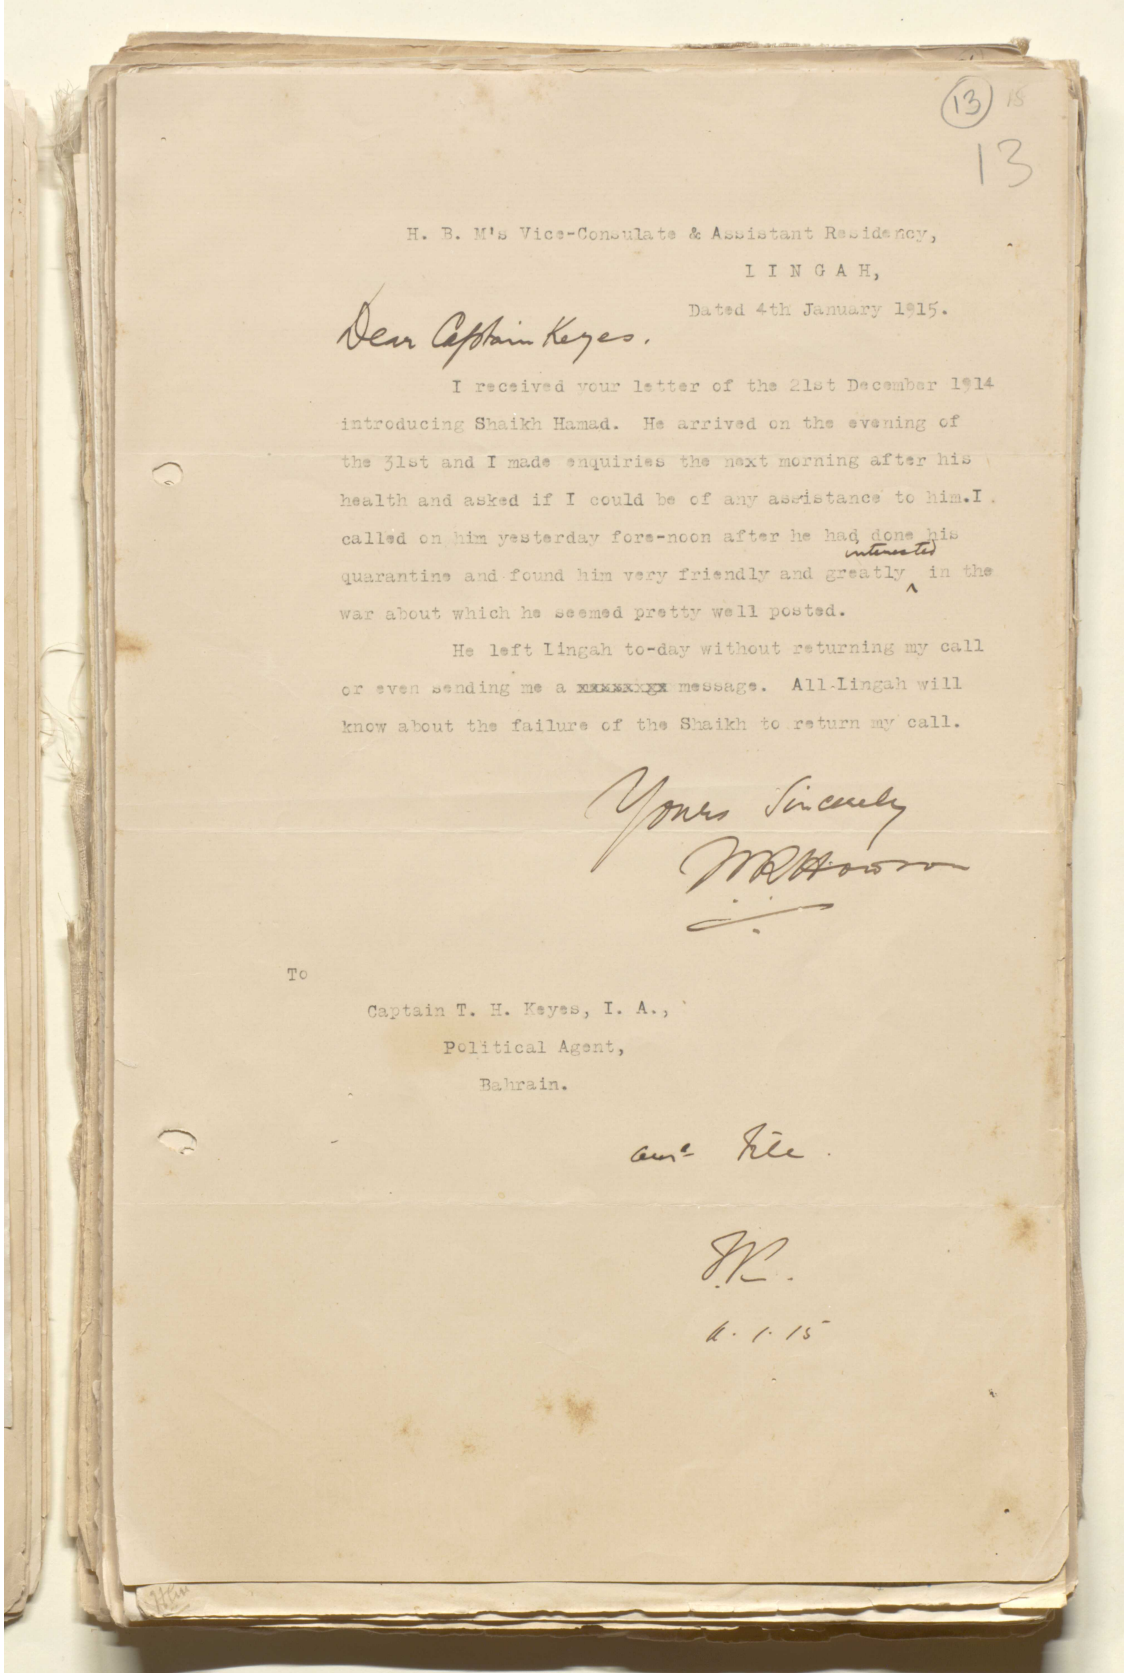 13 15
13
H. B. M's Vice-Consulate & Assistant Residency,
LINGAH,
Dated 4th January 1915.
Dear Captain Keyes.
I received your letter of the 21st December 1914
introducing Shaikh Hamad. He arrived on the evening of
the 31st and I made enquiries the next morning after his
health and asked if I could be of any assistance to him.I
called on him yesterday fore-noon after he had done his
quarantine and found him very friendly and greatly interested in the
war about which he seemed pretty well posted.
He left Lingah to-day without returning my call
or even sending me a message. All Lingah will
know about the failure of the Shaikh to return my call.
Yours Sincerely
WRHowson
To
Captain T. H. Keyes, I. A.,
Political Agent,
Bahrain.
File.
1.15